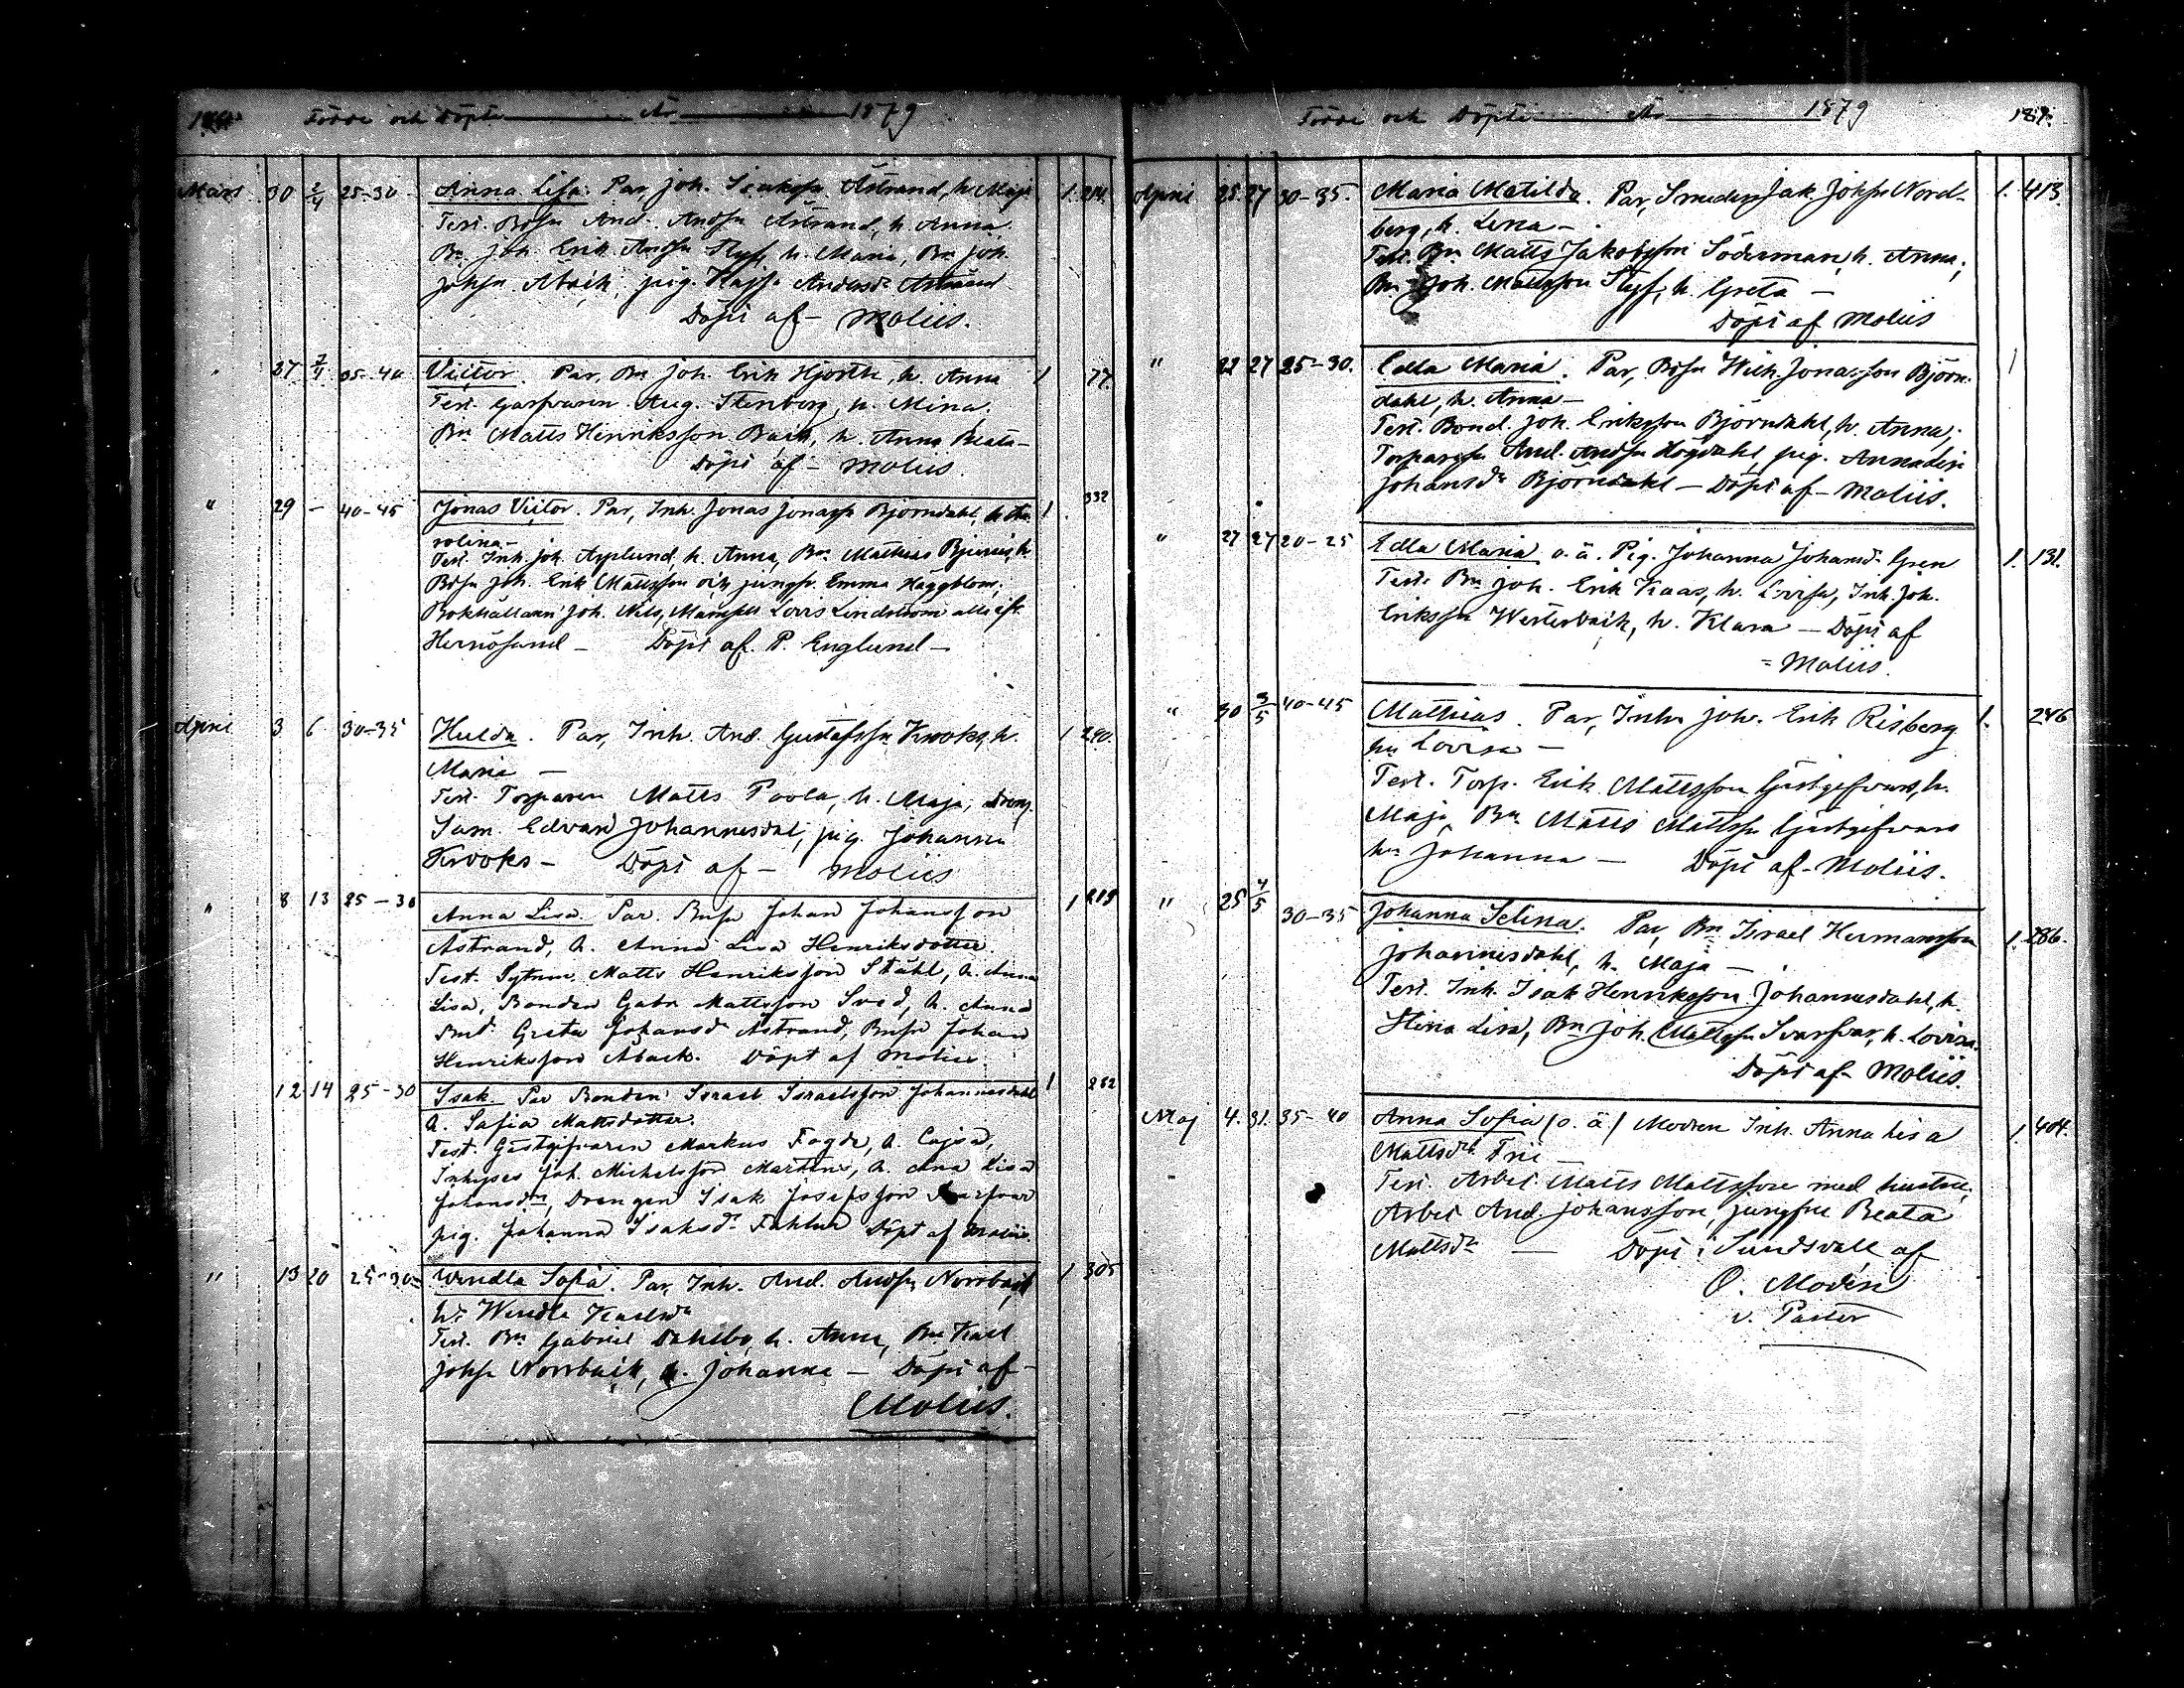 Födde och Döpte År 1879
Mars 30 2/4 25-30 Anna Lisa. Par, Joh. Åstrand, h. Maja 1
Test. Bdsn And. Andsn Åstrand, h. Anna.
Bn Joh. Erik Andsn h. Maria, Bn Joh.
Johsn Åback, pig. Kajsa Andersdr Åstrand
Döpt af - Moliis.
27 7/4 35-40 Victor. Par, Bn Joh. Erik Hjorth, h. Anna 1 77.
Test. Aug. Stenberg, h. Mina.
Bn Matts Henriksson Back, h. Anna Beata-
Döpt af - Moliis
" 29 - 40-45 Jonas Victor. Par, Inh. Jonas Jonassn Björndahl, h. Ka- 1. 332
rolina-
Test. Inh. Joh. Asplund, h. Anna, Bn Mathias h.
Bdsn Joh. Erik Mattsson och jungfr. Emma Häggblom;
Bokhållaren Joh. Nils, Mamsell Lovis Lindström alla ifr.
Hernösand - Döpt af P. Englund -
April 3 6 30-35 Hulda. Par, Inh. And. Gustafssn Krooks, h. 1 290.
Maria -
Test. Torparen Matts Poola, h. Maja, dreng
Sam. Edvard Johannesdal, pig. Johanna
Krooks - Döpt af - Moliis
" 8 13 25-30 Anna Lisa. Par. Bnsn Johan Johansson 1
Åstrand, h. Anna Lisa Henriksdotter.
Test. Sytnm. Matts Henriksson Ståhl, h. Anna
Lisa, Bonden Gabr Mattsson Svid, h. Anna
Bnd. Greta Johansdr Åstrand, Bnsn Johan
Henriksson Åback. Döpt af Moliis.
12 14 25-30 Isak. Par Bonden Israel Israelsson Johannesdahl 1 282
h. Sofia Mattsdotter.
Test. Gästgifvaren Markus Fogde, h. Cajsa,
Inhyses Joh. Michelsson Martens, h. Ana Lisa
Johansdtr, Drengen Isak Josefsson
pig. Johanna Isaksdr Döpt af Moliis.
" 13 20 25-30 Wendla Sofia. Par, Inh. And. Andsn Norrback 1 305
h. Wendla Karlsdr
Test. Bn Gabriel Dahlbo, h. Anna, Bn Karl
Johsn Norrback, h. Johanna - Döpt af -
Moliis.
Födde och Döpte År 1879
April 25. 27 30-35. Maria Matilda. Par, Smeden Jak. Johsn Nord- 1. 413.
berg, h. Lena -
Test. Bn Matts Jakobsson Söderman, h. Anna;
Bn Joh. Mattsson h. Greta -
Döpt af Moliis
" 22 27 25-30. Edla Maria. Par, Bdsn Wilh. Jonasson Björn- 1
dahl, h. Anna -
Test. Bond. Joh. Eriksson Björndahl, h. Anna;
Torparesn And. Andsn Högdahl, pig. Annalisa
Johansdr Björndahl - Döpt af - Moliis.
" 27 27 20-25 Edla Maria o.ä. Pig. Johanna Johansdr Gren 1. 131.
Test. Bn Joh. Erik Kaas, h. Lovisa, Inh. Joh.
Eriksson Westerback, h. Klara - Döpt af
= Moliis.
" 30 3/5 40-45 Mathias. Par, Inh. Joh. Erik Risberg 1. 246
hu Lovisa -
Test. Torp. Erik Mattsson Gästgifvars, h.
Maja, Bn Matts Mattssn Gästgifvars
hu Johanna - Döpt af - Moliis.
" 25 4/5 30-35 Johanna Selina. Par, Bn Israel Hermansson 1. 286.
Johannesdahl, h. Maja -
Test. Inh. Isak Henriksson Johannesdahl, h.
Stina Lisa, Bn Joh. Mattsson Svarfvar, h. Lovisa.
Döpt af - Moliis.
Maj 4. 31. 35-40 Anna Sofia (o.ä) Modren Inh. Anna Lisa 1. 404.
Mattsdr Fri -
Test. Arbet. Matts Mattsson med hustru,
Arbet And. Johansson, jungfru Beata
Mattsdr - Döpt i Sundsvall af
O. Modin
v. Pastor